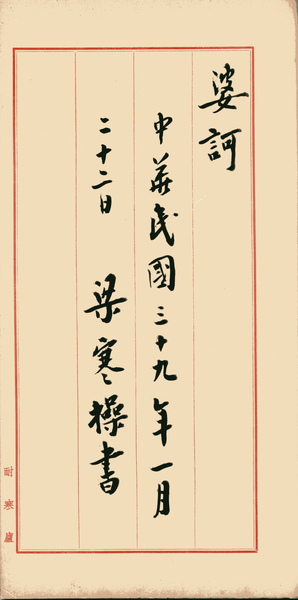 婆訶
中華民國三十九年一月
二十二日 梁寒操書
耐寒廬